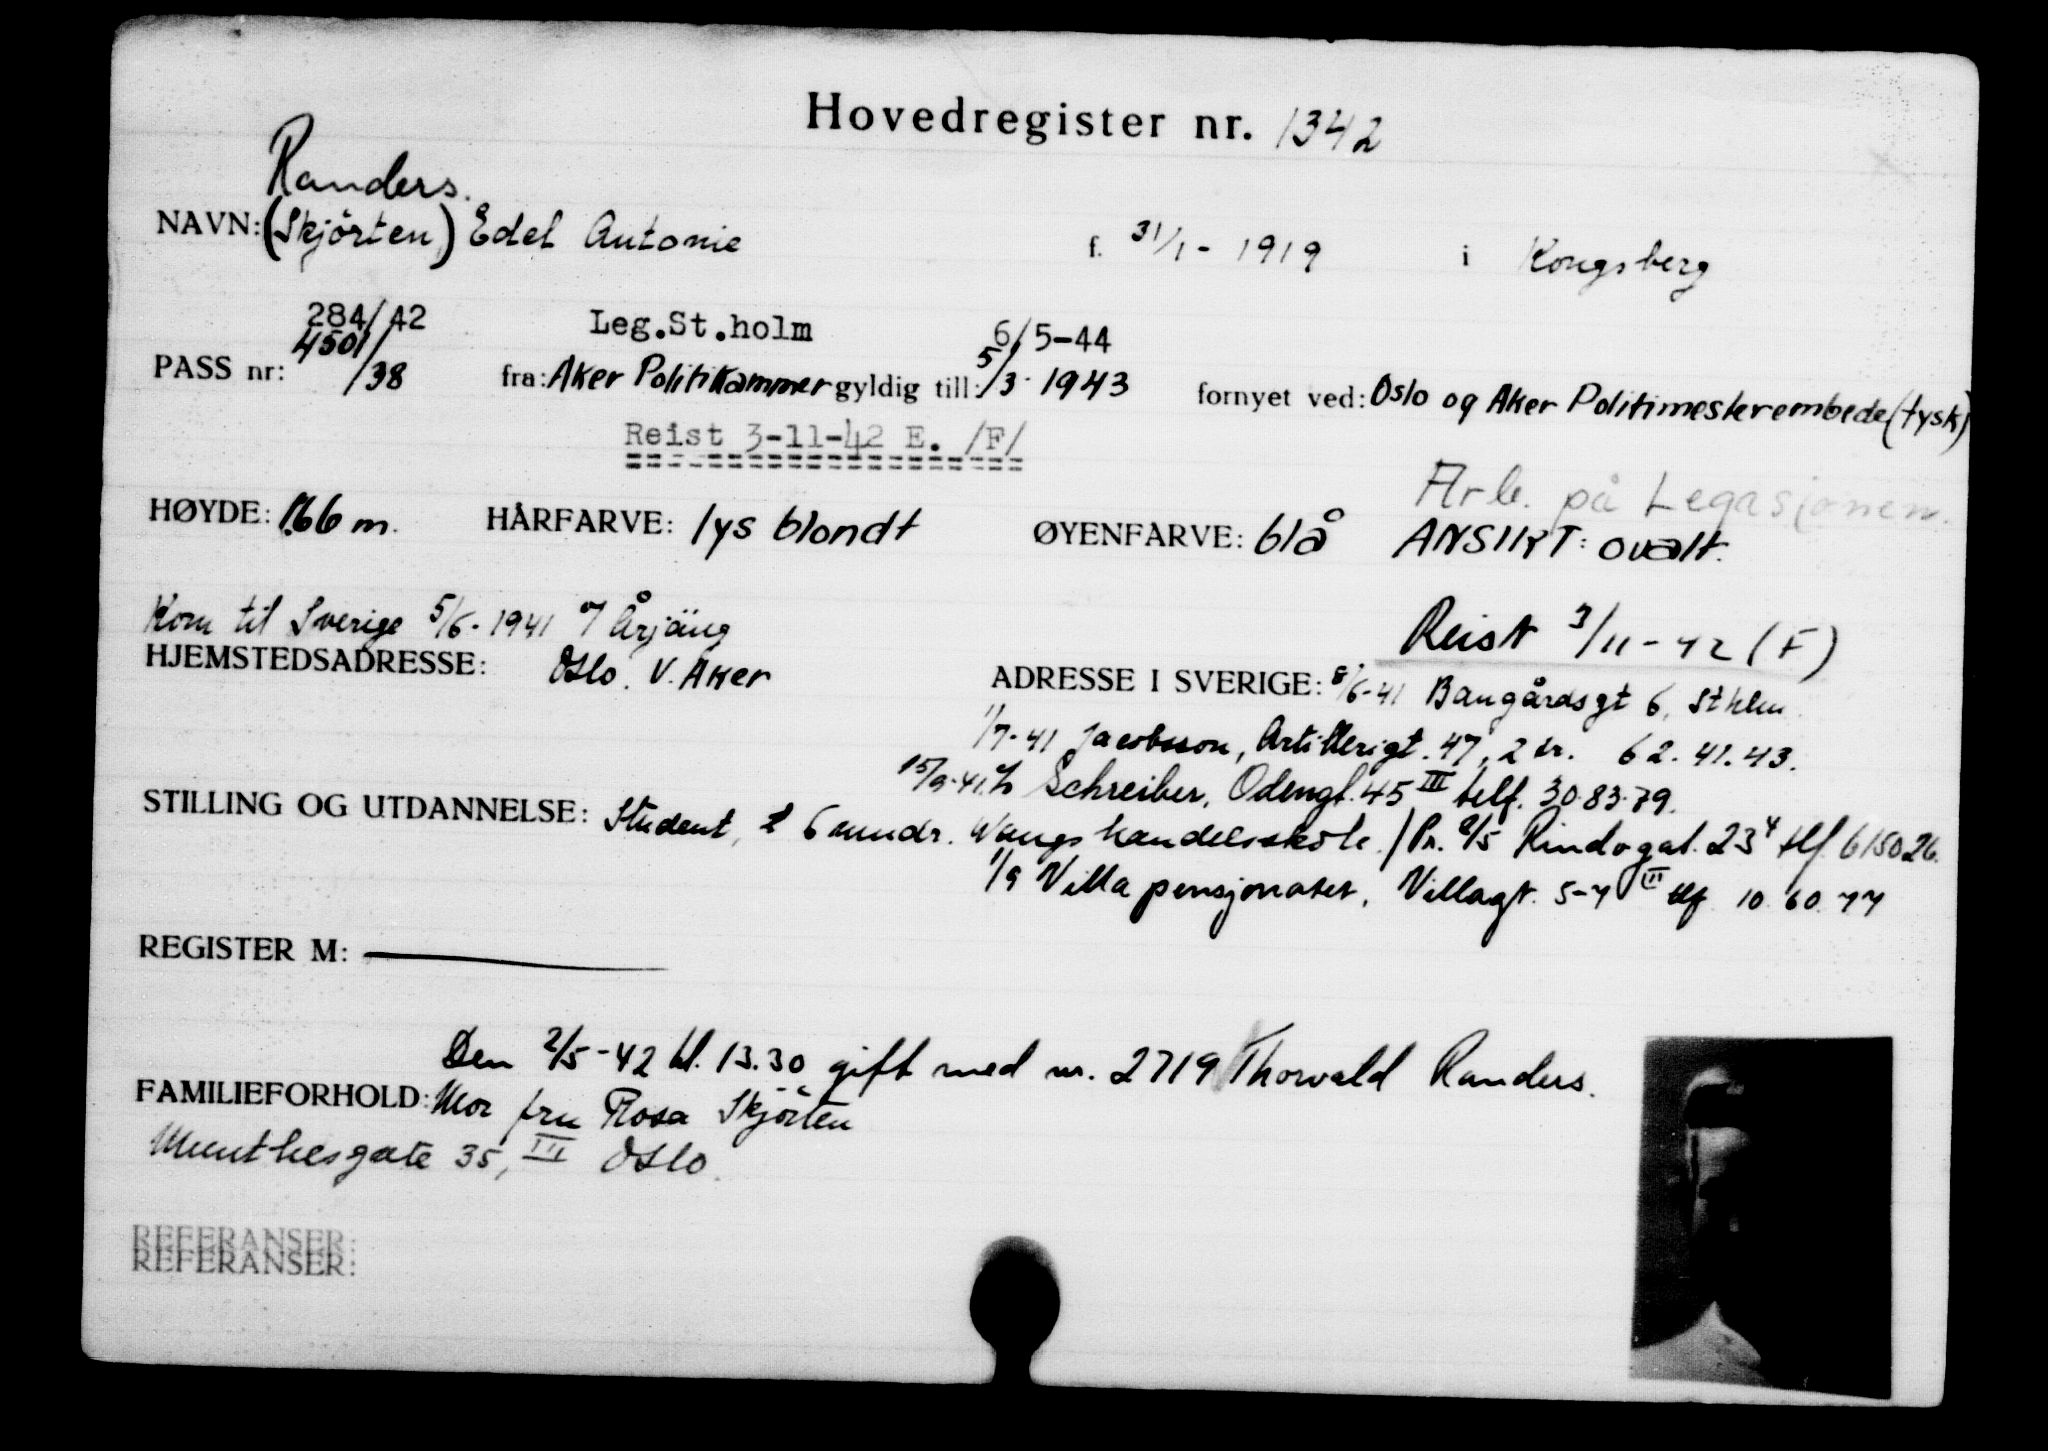 Hovedregister nr. 1342
Randers.
NAVN: (Skjörten) Edel Antonie f. 31/1 - 1919 i Kongsberg
284/42 Leg.St.holm 6/5-44
PASS nr: 4501/38 fra: Aker Politikammer gyldig till: 5/3 - 1943 fornyet ved: Oslo og Aker Politimesterembede (tysk)
Reist 3-11-42 E. /F/
Arb. på Legasjonen.
HØYDE: 1.66 m. HÅRFARVE: lys blondt ØYENFARVE: blå ANSIKT: ovalt.
Kom til Sverige 5/6 - 1941 Årjäng
Reist 3/11 - 42 (F)
HJEMSTEDSADRESSE: Oslo. V. Aker
ADRESSE I SVERIGE: 8/6-41 Bangårdsgt 6, Sthlm
1/7-41 Jacobsson, Artillerigt. 47, 2 tr. 62.41.43.
15/9-41. Schreiber, Odengt. 45 III telf. 30.83.79.
STILLING OG UTDANNELSE: Student, 6 mndr. Wangs handelsskole. / Pr. 2/5 Rindögat. 23 4 tlf 615026.
1/9 Villa pensjonatet, Villagt. 5-7 III tlf 10.60.77
REGISTER M:
Den 2/5 - 42 kl. 13.30 gift med nr. 2719 Thorvald Randers.
FAMILIEFORHOLD: Mor fru Rosa Skjörten
Munthesgate 35, III Oslo.
REFERANSER:
REFERANSER: